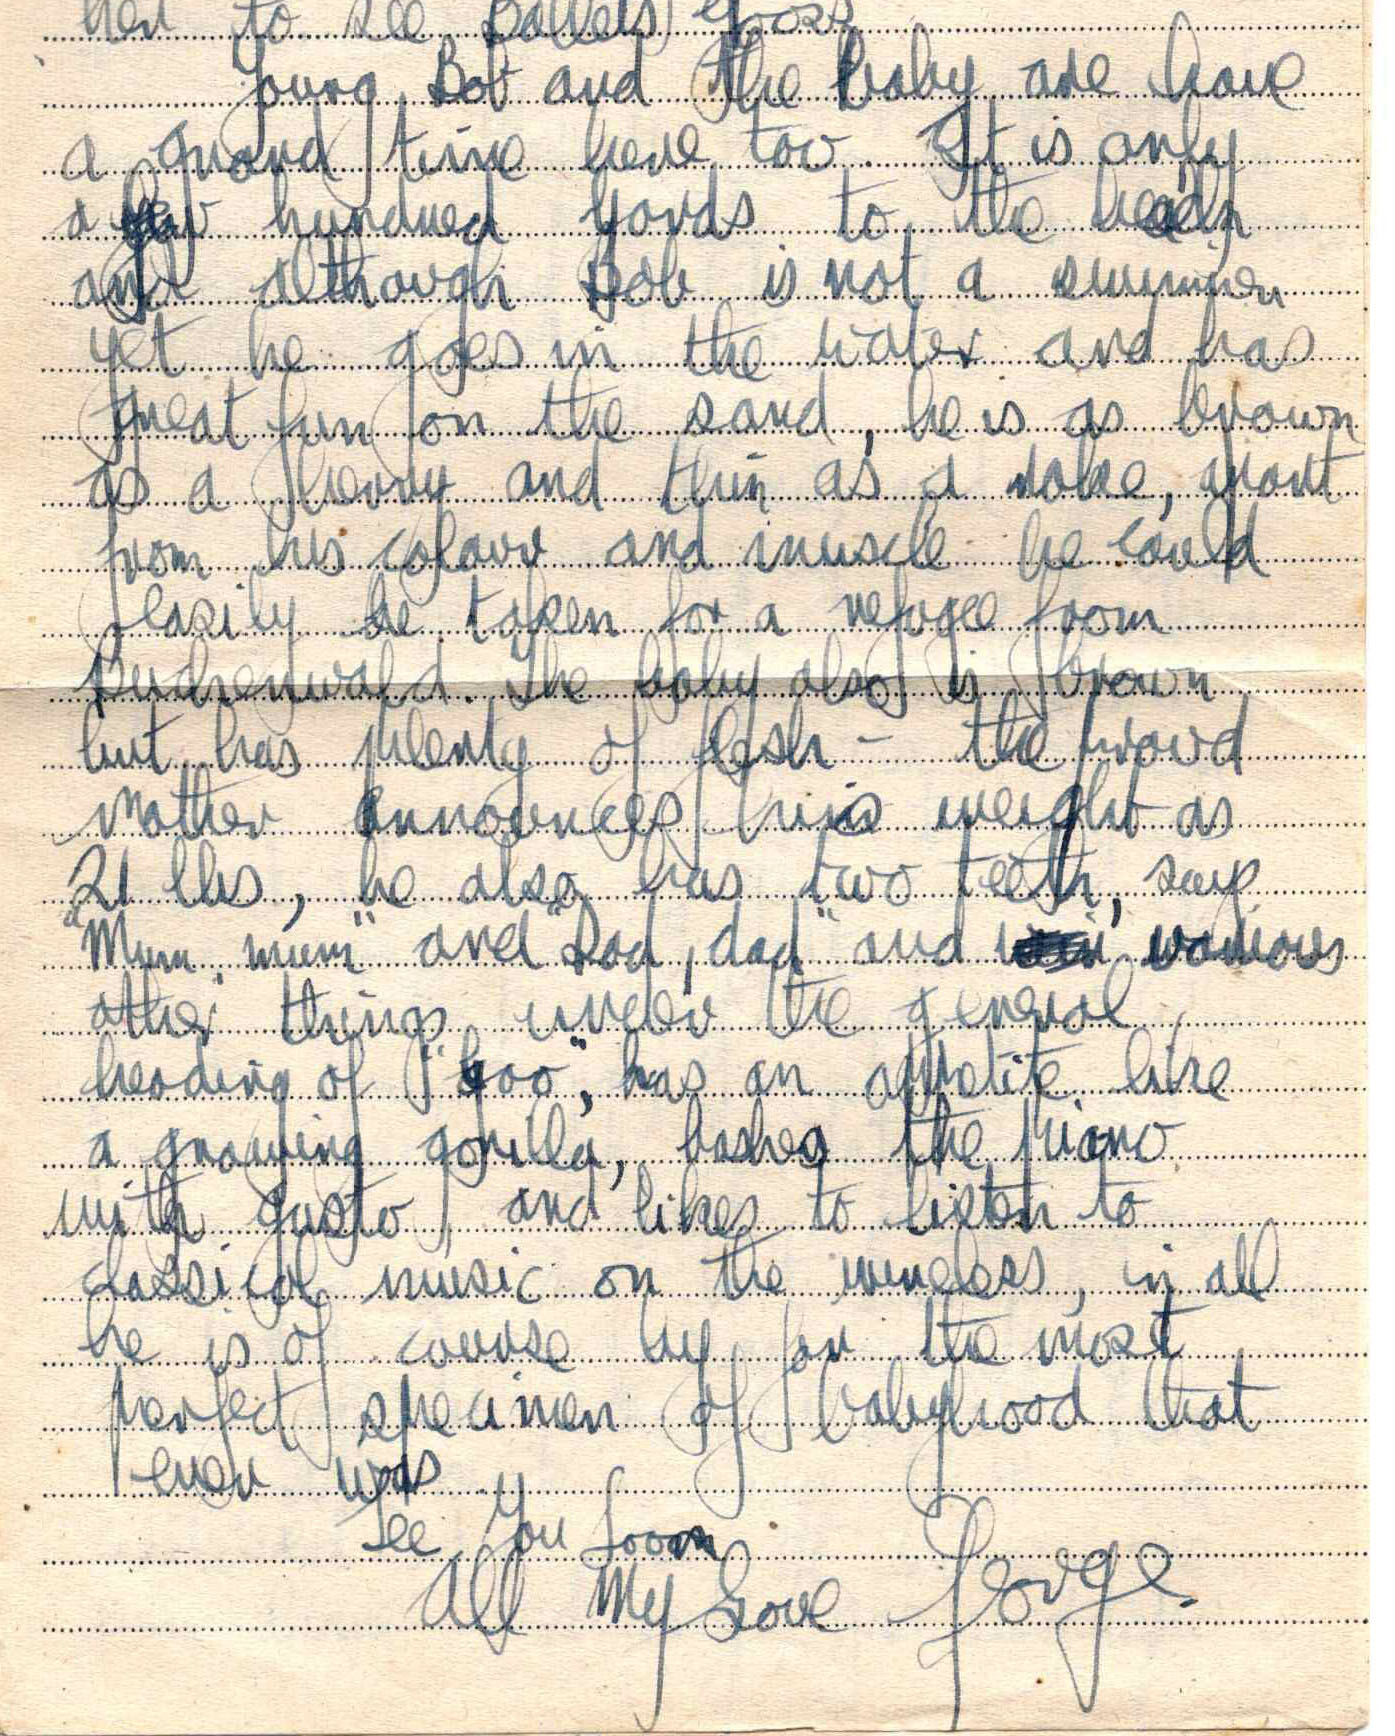 her to see Ballets Jooss
Young Bob and the baby are have
a grand time here too. It is only
a few hundred yards to the beach
and although Bob is not a swimmer
yet he goes in the water and has
great fun on the sand, he is as brown
as a berry and thin as a rake, apart
from his colour and muscle he could
easily be taken for a refugee from
Buchenwald. The baby also is brown
but has plenty of flesh - the proud
mother announces his weight as
21 lbs, he also has two teeth, says
"Mum mum" and "Dad, dad" and various
other things under the general
heading of "goo", has an appetite like
a growing gorilla, bashes the piano
with gusto, and likes to listen to
classical music on the wireless, in all
he is of course by far the most
perfect specimen of babyhood that
ever was
See You Soon
All My Love George.